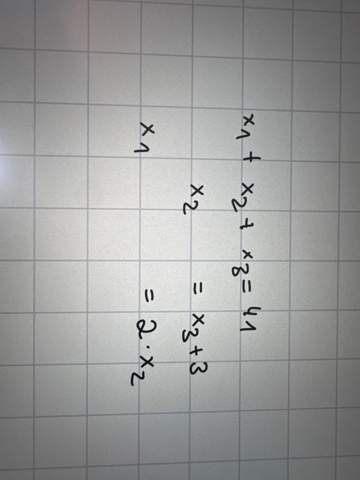 x₁ + x₂ + x₃ = 41
x₂ = x₃ + 3
x₁ = 2 · x₂